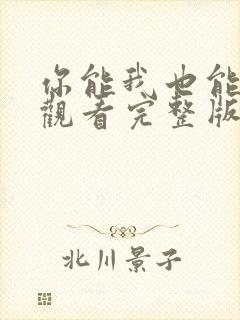 你能我也能
觀看完整版
北川景子